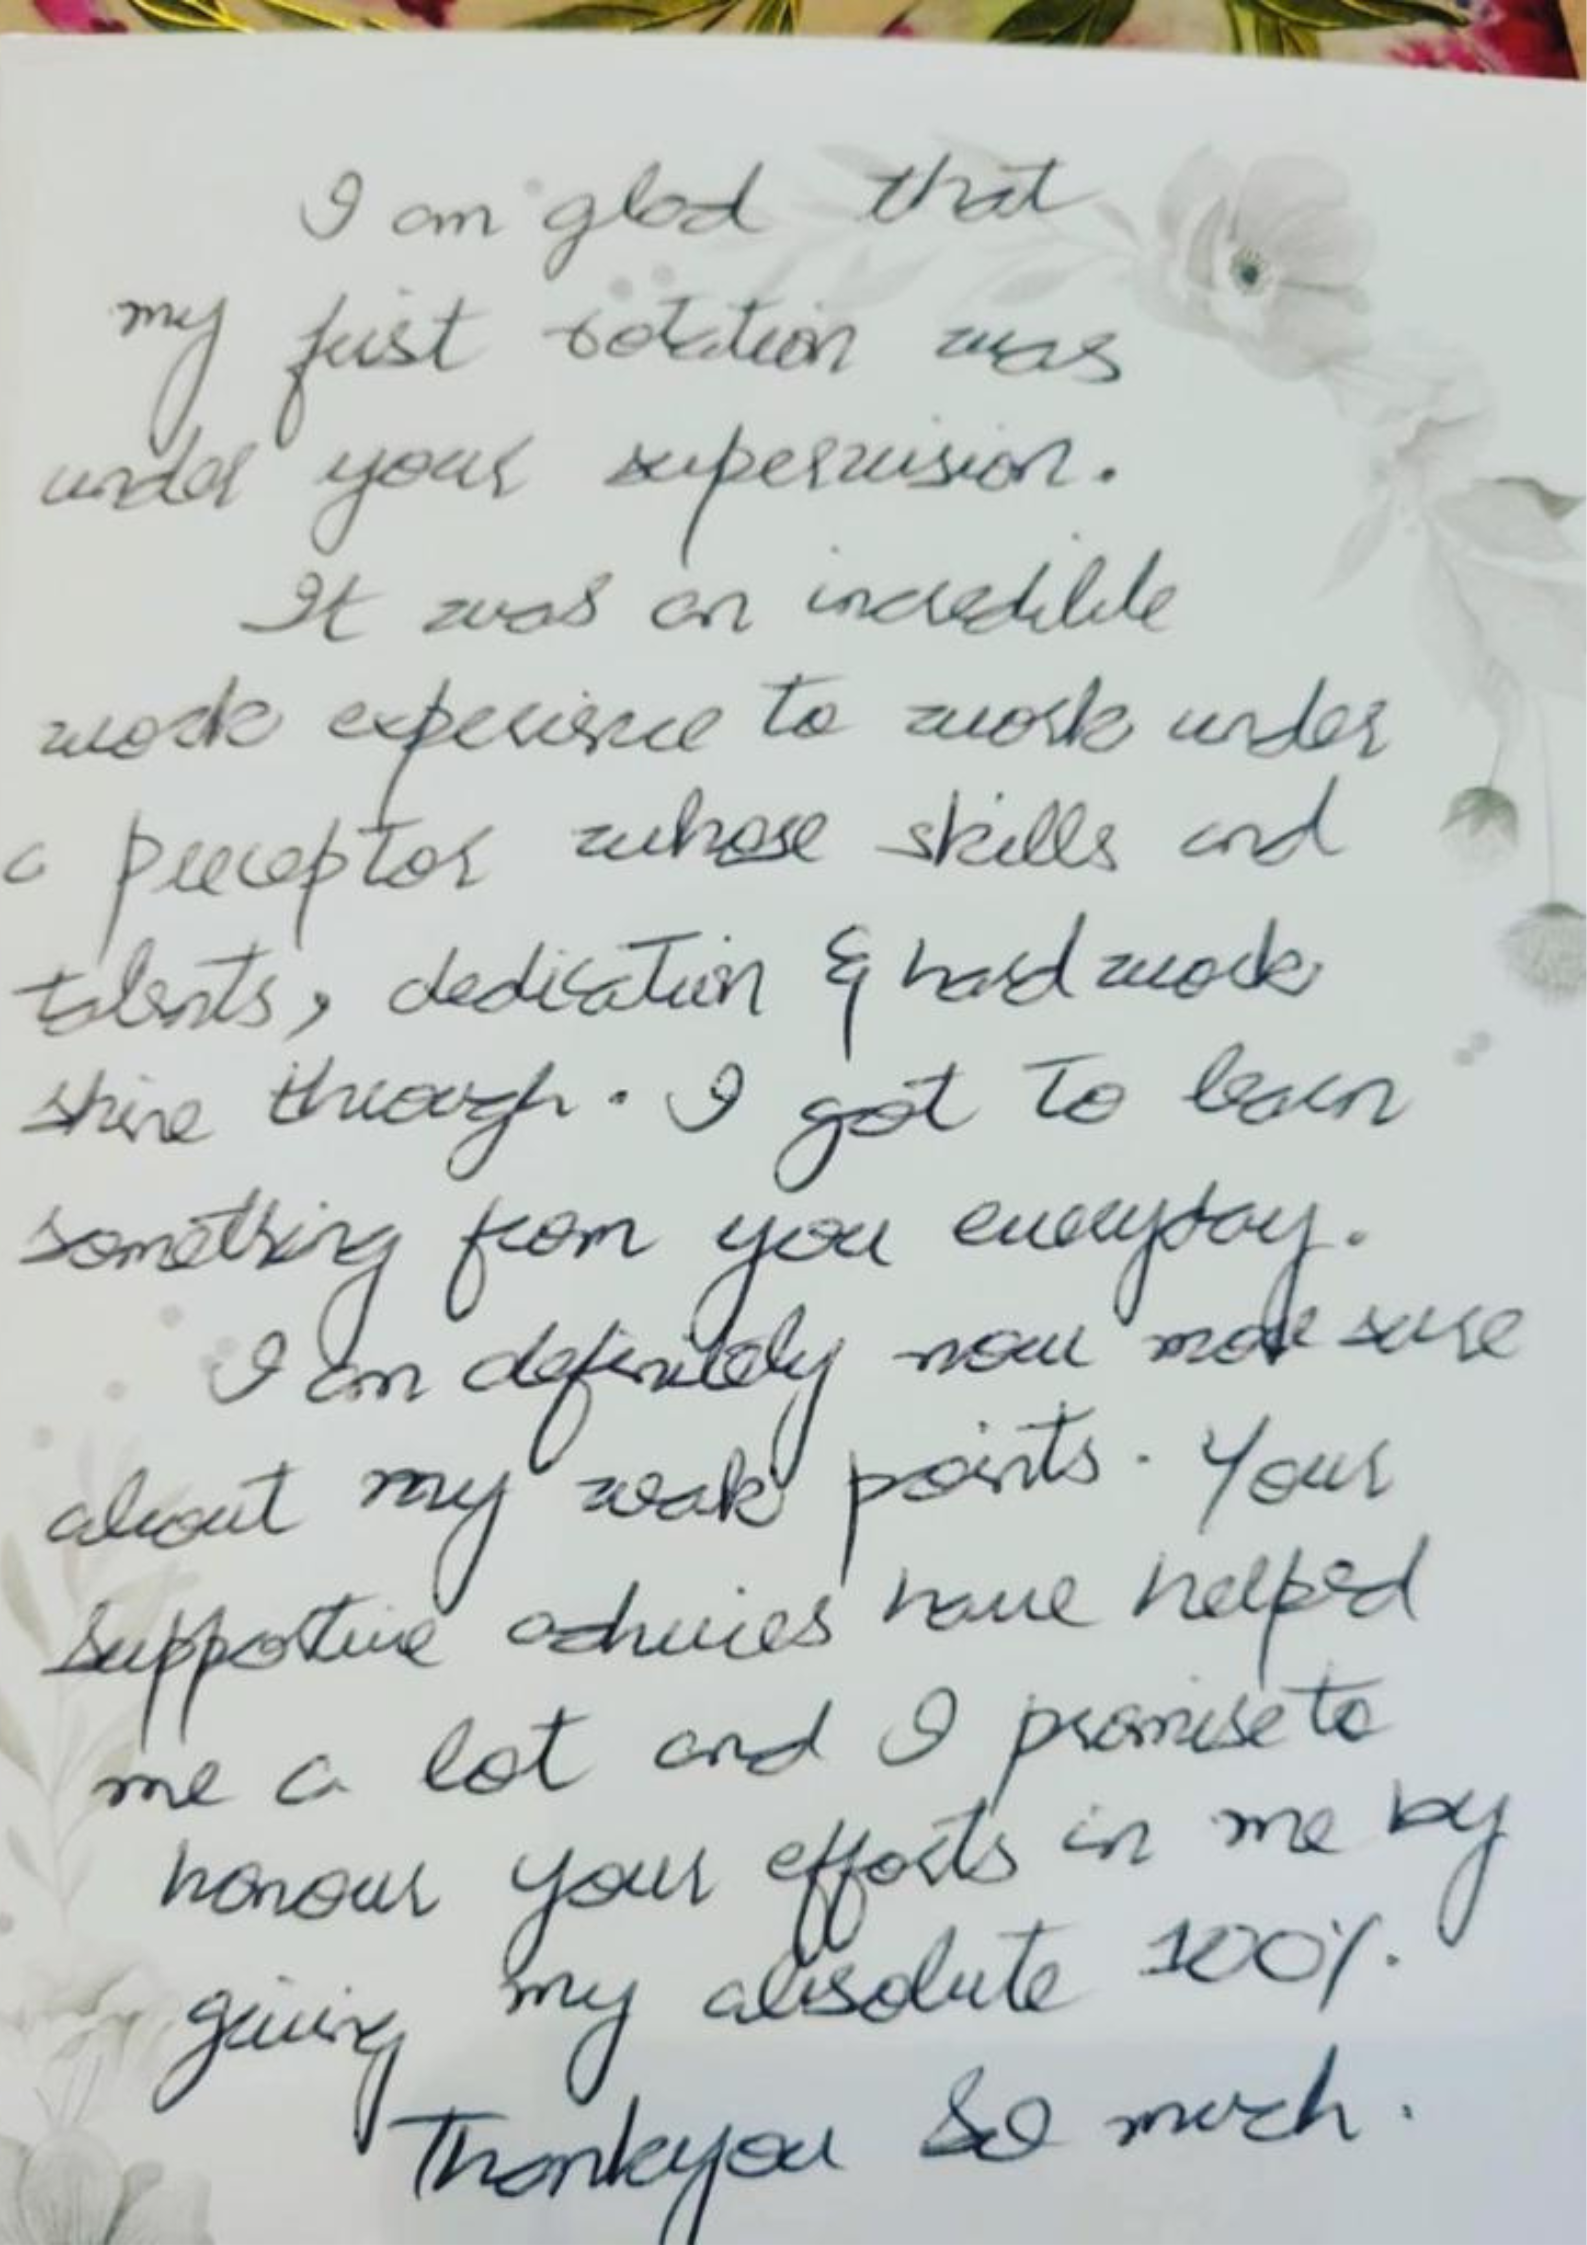 I am glad that
my first rotation was
under your supervision.
It was an incredible
work experience to work under
a preceptor whose skills and
talents, dedication & hard work
shine through. I got to learn
something from you everyday.
I am definitely now more sure
about my weak points. Your
supportive advices have helped
me a lot and I promise to
honour your efforts in me by
giving my absolute 100%.
Thankyou so much.